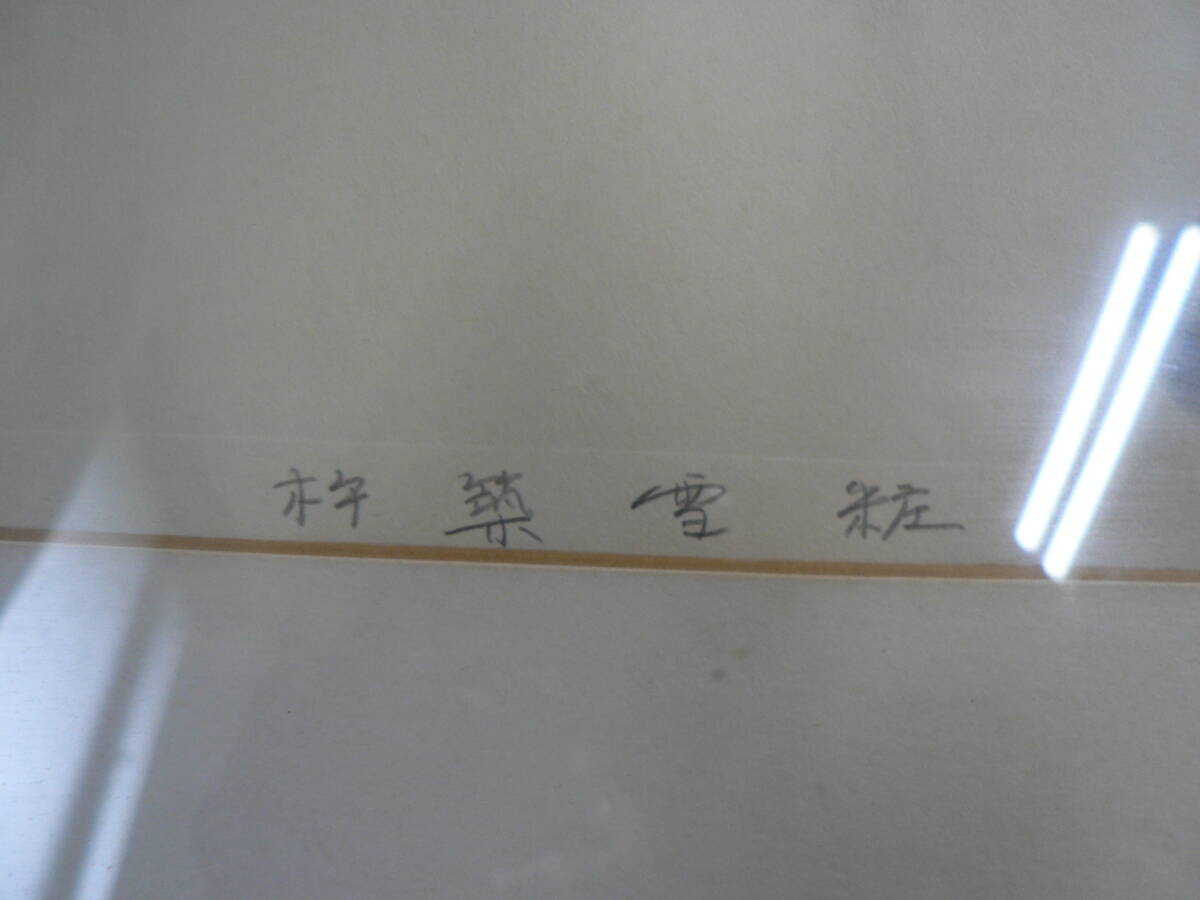 杵築雪粧